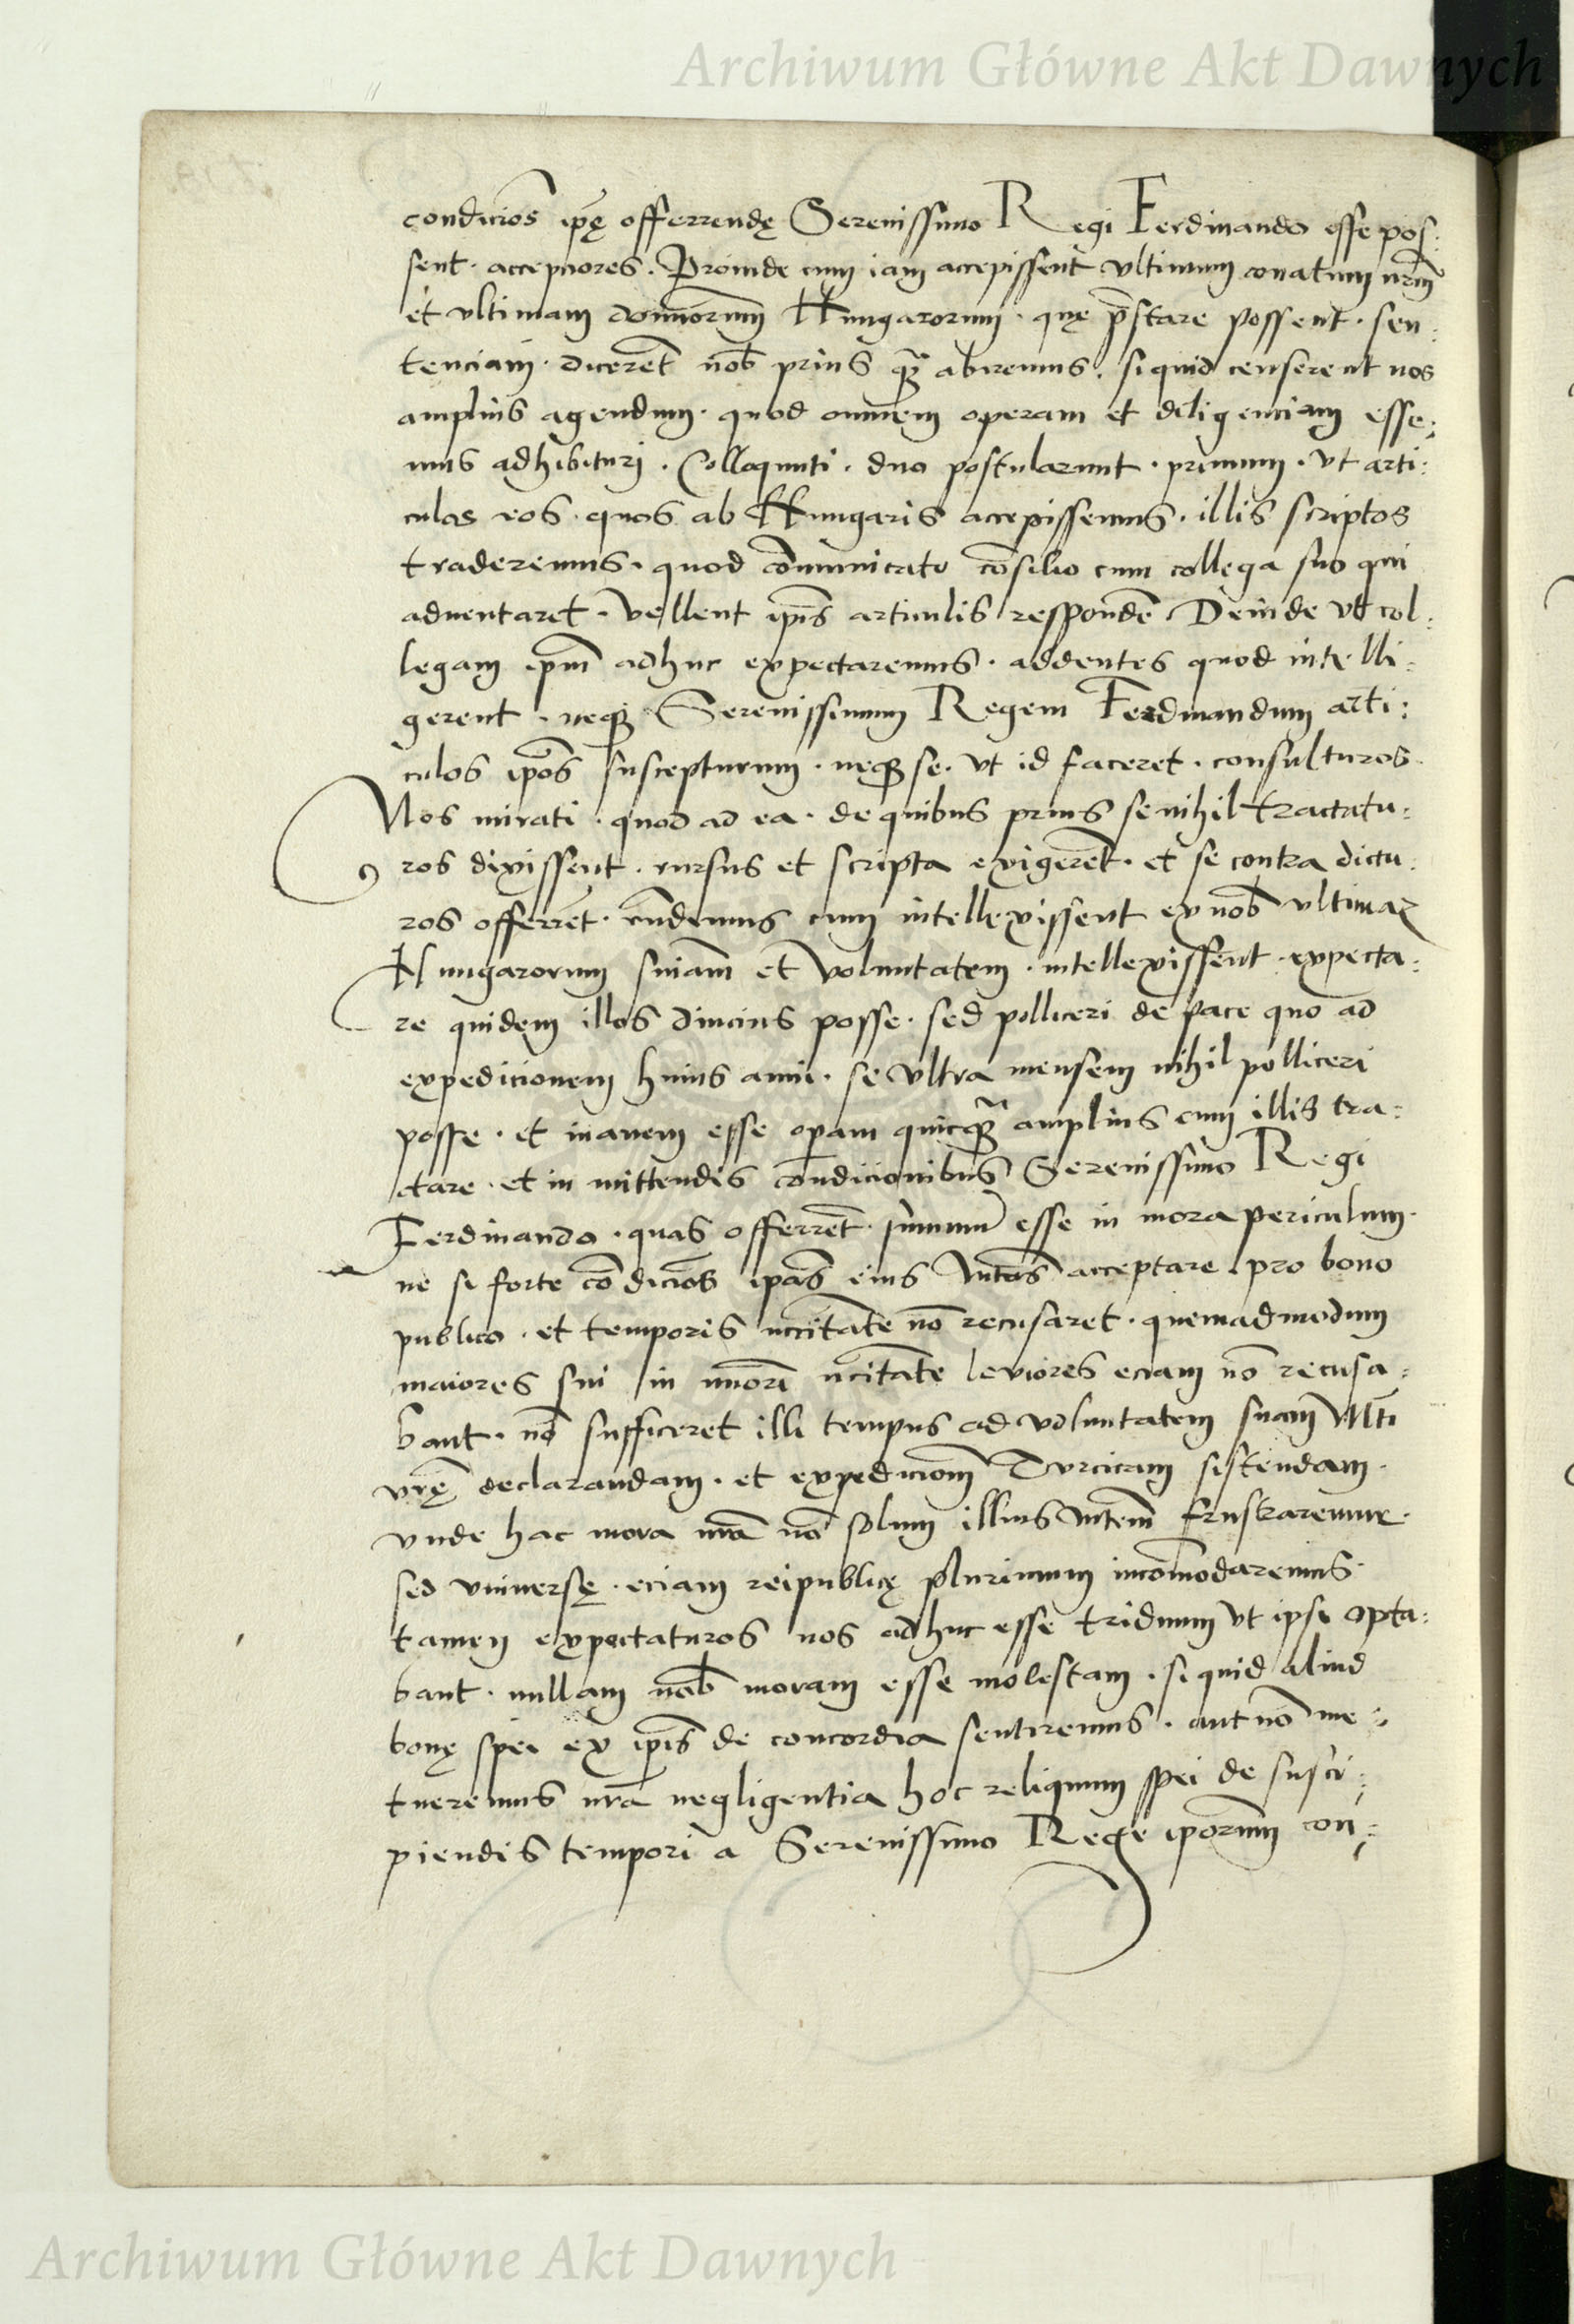 Archiwum Główne Akt Dawnych
condicios̄ ip̄ę offerrendę Serenissimo Regi Ferdinando esse pos:
sent. acceptiores. Proinde cum iam accepissent vltimum conatum nr̄m
et vltimam domīorum Hungarorum. quę p̄stare possent. sen:
tenciam. dicerēt nob̄ prius q̄ꝫ abiremus. siquid censerent nos
amplius agendum. quod omnem operam et diligenciam esse:
mus adhibituri. Colloquuti. duo postularunt. primum. vt arti:
culos eos. quos ab Hungaris accepissemus. illis scriptos
traderemus. quod cōmunicato cōsilio cum collega suo qui
aduentaret. vellent ip̄is articulis respondē. Deinde vt col:
legam ip̄m adhuc expectaremus. addentes quod intelli:
gerent. neqꝫ Serenissimum Regem Ferdinandum arti:
culos ip̄os suscepturum. neqꝫ se. vt id faceret. consulturos.
Nos mirati. quod ad ea. de quibus prius se nihil tractatu:
ros dixissent. rursus et scripta exigerēt. et se contra dictu:
ros offerrēt. rn̄dimus cum intellexissent ex nob̄ vltimaꝫ
Hungarorum sn̄iam et voluntatem. intellexissent. expecta:
re quidem illos diucius posse. sed polliceri de pace quo ad
expedicionem huius anni. se vltra mensem nihil polliceri
posse. et inanem esse operam quicqꝫ̄ amplius cum illis tra:
ctare. et in mittendis condicionibus Serenissimo Regi
Ferdinando. quas offerrēt. sum̄um esse in mora periculum.
ne si forte cōdicios̄ ip̄as eius Mtās acceptare pro bono
publico. et temporis nc̄citate nō recusaret. quemadmodum
maiores sui in mīori nc̄itate leuiores eciam nō recusa:
bant. nō sufficeret illi tempus ad voluntatem suam Mti
vr̄ę declarandam. et expedicionem Turcicam sistendam.
vnde hac mora nr̄a nō solum illius Mtem̄ frustraremur.
sed vniuersę. eciam reipublicę plurimum incōmodaremus.
tamen expectaturos nos adhuc esse triduum vt ipsi opta:
bant. nullam nob̄ moram esse molestam. si quid aliud
bonę spei ex ip̄is de concordia sentiremus. aut nō me:
tueremus nr̄a negligentia hoc reliquum spei de susci:
piendis tempori a Serenissimo Rege ip̄orum con:
Archiwum Główne Akt Dawnych